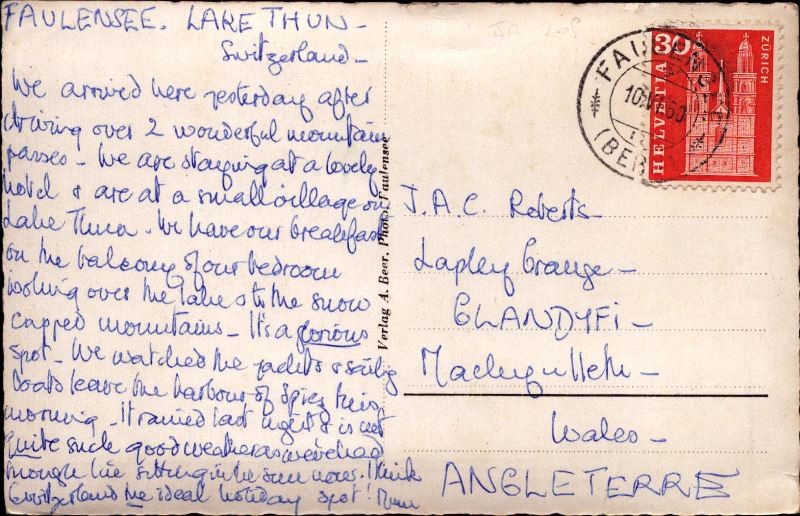 FAULENSEE. LAKE THUN -
Switzerland -
We arrived here yesterday after
driving over 2 wonderful mountain
passes - We are staying at a lovely
hotel & are at a small village on
Lake Thun - We have our breakfast
on the balcony of our bedroom
looking over the lake & to the snow
capped mountains - It's a glorious
spot - We watched the yachts & sailing
boats leave the harbour of Spiez this
morning - It rained last night & is not
quite such good weather as we've had
though I'm sitting in the sun now. I think
Switzerland the ideal holiday spot! Mum
Verlag A. Beer, Phot., Faulensee
FAULENSEE
10.VI.60
(BERN)
30
HELVETIA
ZÜRICH
J.A.C. Roberts -
Lapley Grange -
GLANDYFI -
Machynlleth -
Wales -
ANGLETERRE